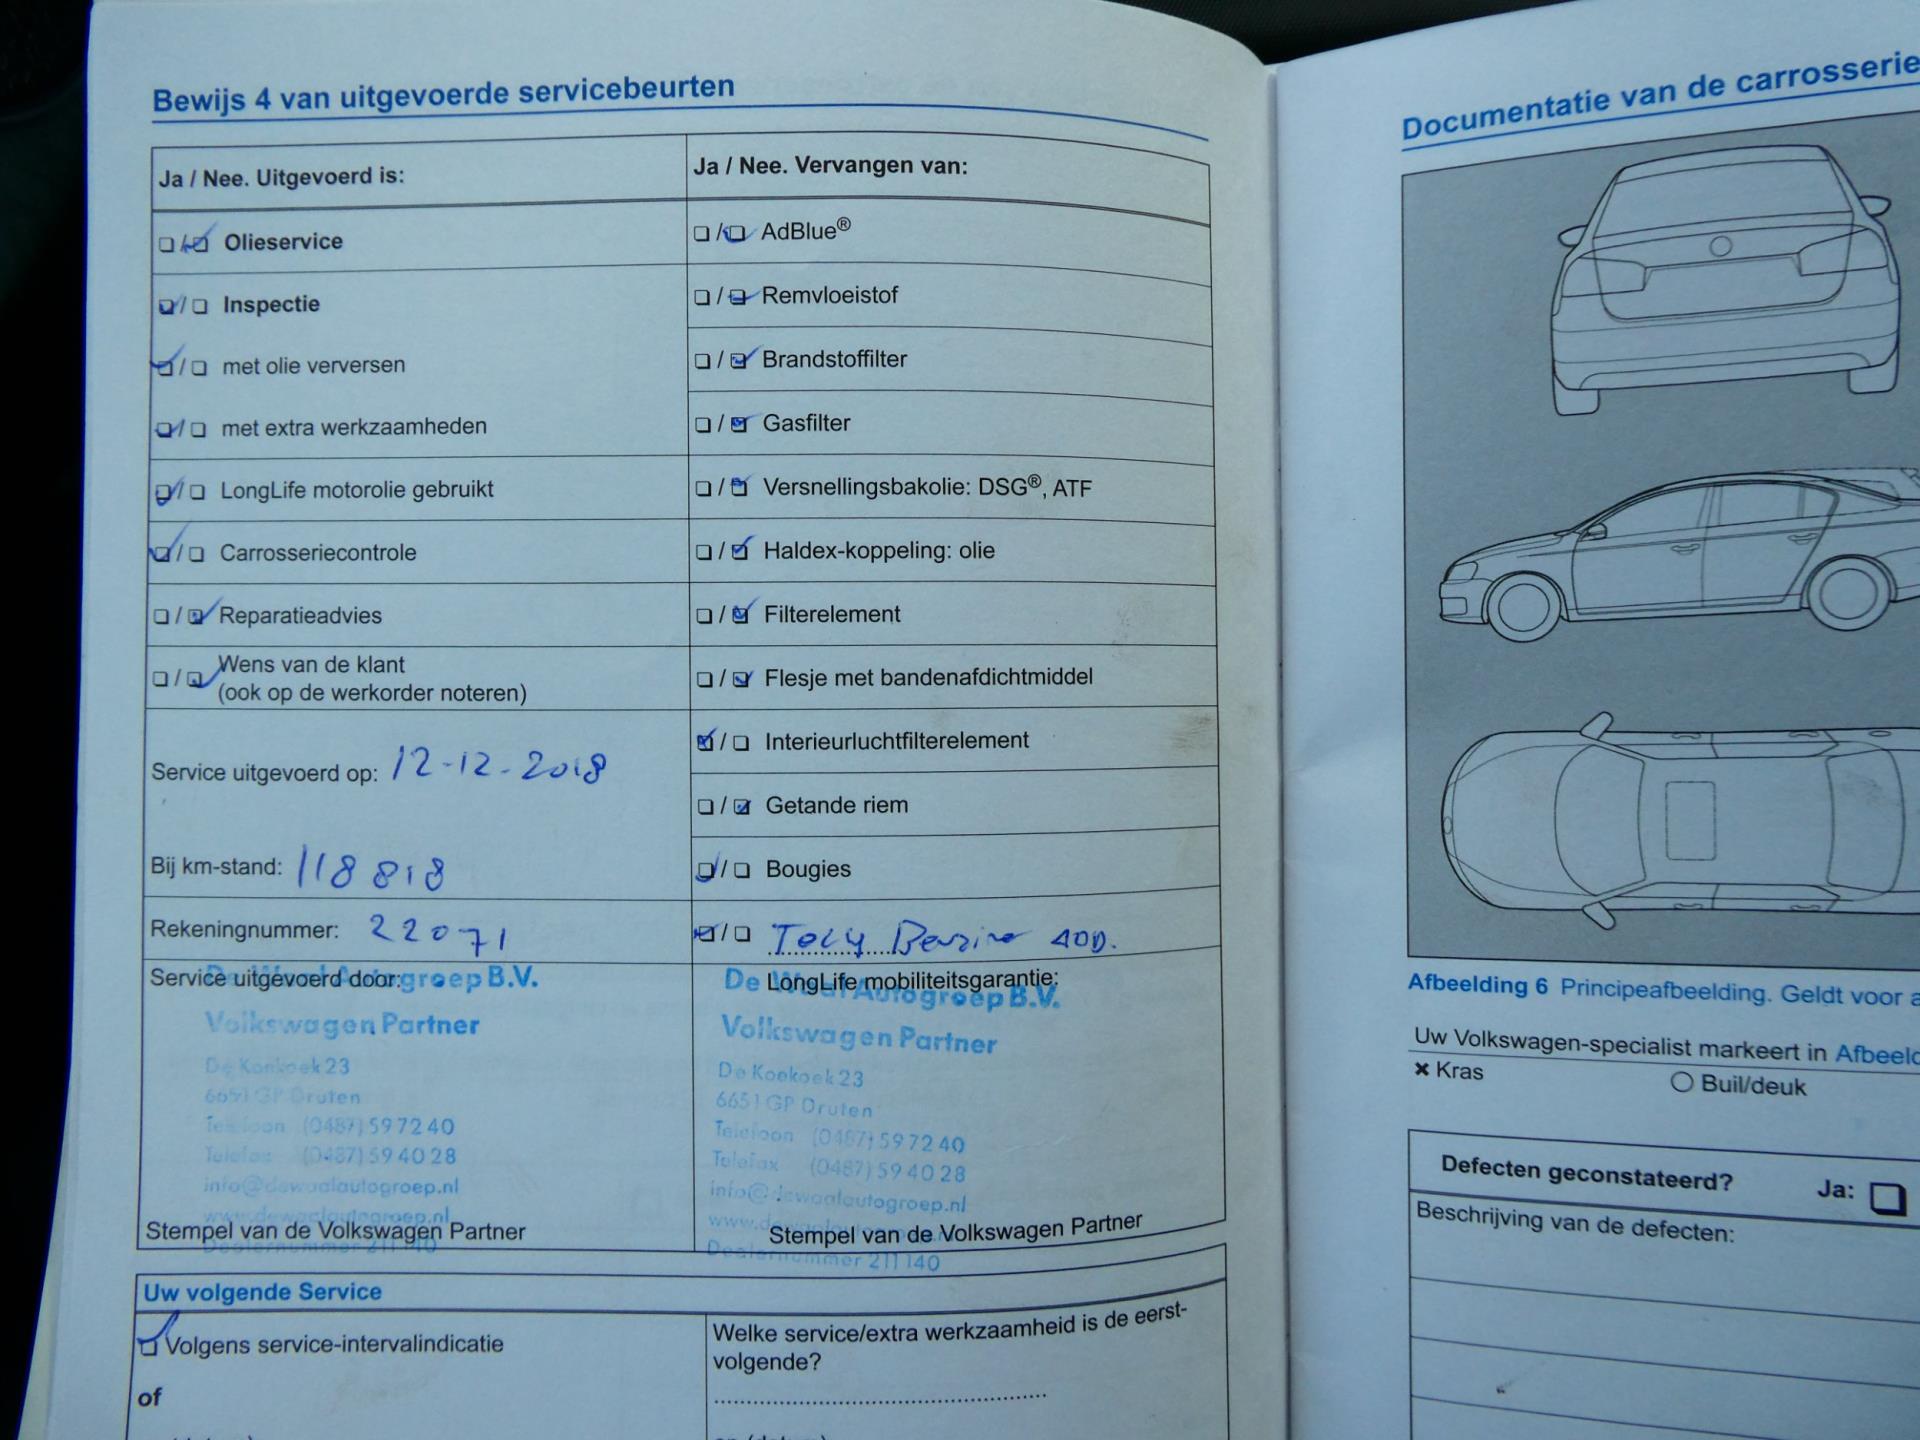 Bewijs 4 van uitgevoerde servicebeurten
Ja / Nee. Uitgevoerd is:
Olieservice
Inspectie
met olie verversen
met extra werkzaamheden
LongLife motorolie gebruikt
Carrosseriecontrole
Reparatieadvies
Wens van de klant
(ook op de werkorder noteren)
Service uitgevoerd op: 12-12-2018
Bij km-stand: 118818
Rekeningnummer: 22071
Ja / Nee. Vervangen van:
AdBlue®
Remvloeistof
Brandstoffilter
Gasfilter
Versnellingsbakolie: DSG®, ATF
Haldex-koppeling: olie
Filterelement
Flesje met bandenafdichtmiddel
Interieurluchtfilterelement
Getande riem
Bougies
Benzine
Service uitgevoerd door:
De Waal Autogroep B.V.
Volkswagen Partner
De Koekoek 23
6651 GP Druten
Telefoon (0487) 59 72 40
Telefax (0487) 59 40 28
info@dewaalautogroep.nl
www.dewaalautogroep.nl
Dealernummer 211 140
Stempel van de Volkswagen Partner
LongLife mobiliteitsgarantie:
De Waal Autogroep B.V.
Volkswagen Partner
De Koekoek 23
6651 GP Druten
Telefoon (0487) 59 72 40
Telefax (0487) 59 40 28
info@dewaalautogroep.nl
www.dewaalautogroep.nl
Dealernummer 211 140
Stempel van de Volkswagen Partner
Uw volgende Service
Volgens service-intervalindicatie
of
Welke service/extra werkzaamheid is de eerst-
volgende?
Documentatie van de carrosserie
Afbeelding 6 Principeafbeelding. Geldt voor a
Uw Volkswagen-specialist markeert in Afbeeld
× Kras
Buil/deuk
Defecten geconstateerd?
Ja:
Beschrijving van de defecten: